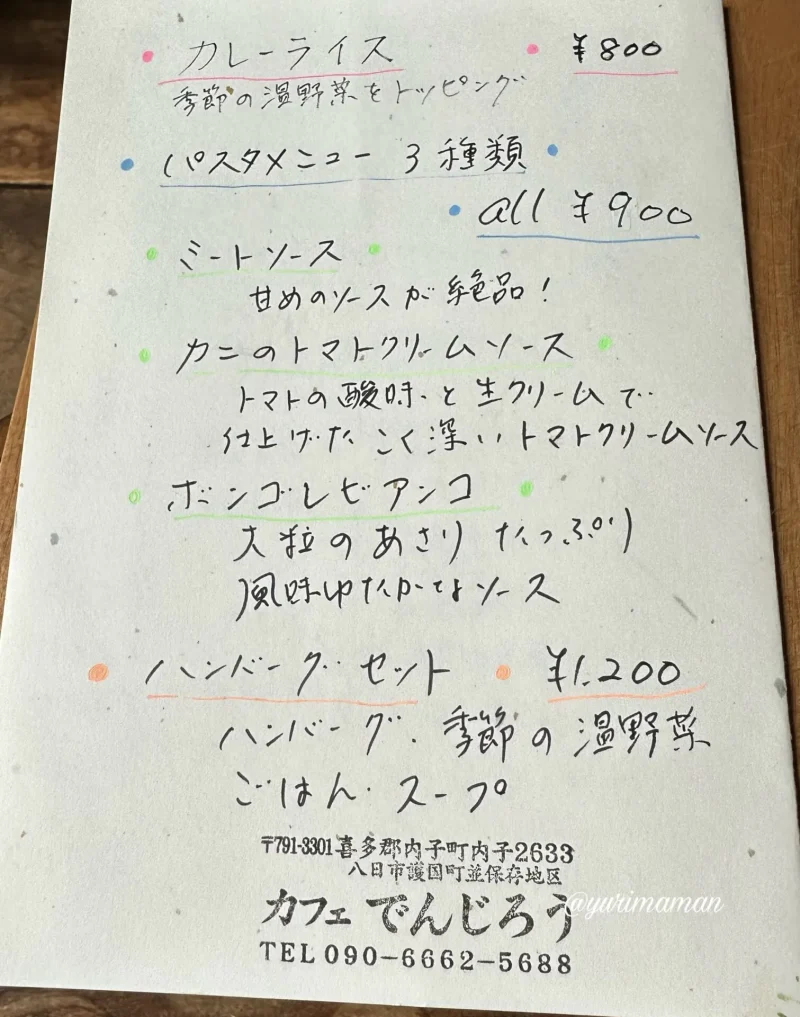 カレーライス ¥800
季節の温野菜をトッピング
パスタメニュー 3種類
all ¥900
ミートソース
甘めのソースが絶品!
カニのトマトクリームソース
トマトの酸味と生クリームで
仕上げたこく深いトマトクリームソース
ボンゴレビアンコ
大粒のあさりたっぷり
風味ゆたかなソース
ハンバーグセット ¥1.200
ハンバーグ.季節の温野菜
ごはん.スープ
〒791-3301喜多郡内子町内子2633
八日市護国町並保存地区
カフェ でんじろう
@yurimaman
TEL 090-6662-5688